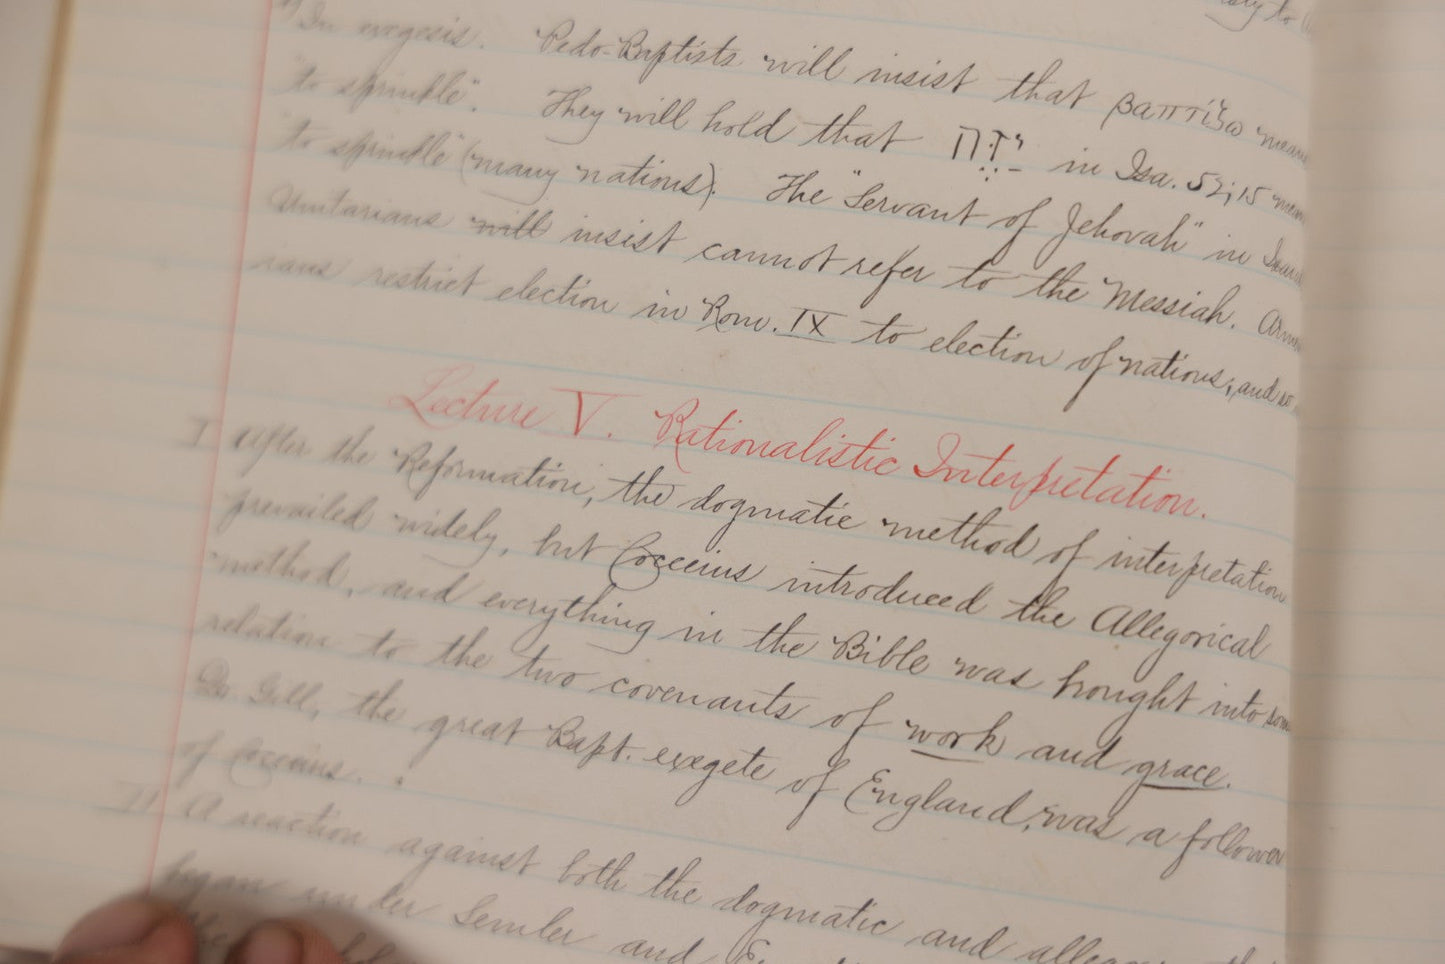 In exegesis. Pedo-Baptists will insist that βαπτίζω means
"to sprinkle". They will hold that in Isa. 52; 15 means
"to sprinkle" (many nations). The "Servant of Jehovah" in
Unitarians will insist cannot refer to the Messiah.
restrict election in Rom. IX to election of nations; and so
Lecture V. Rationalistic Interpretation.
I After the Reformation, the dogmatic method of interpretation
prevailed widely, but Cocceius introduced the Allegorical
method, and everything in the Bible was brought into some
relation to the two covenants of work and grace.
Dr. Gill, the great Bapt. exegete of England, was a follower
of Cocceius.
II A reaction against both the dogmatic and
began under Semler and